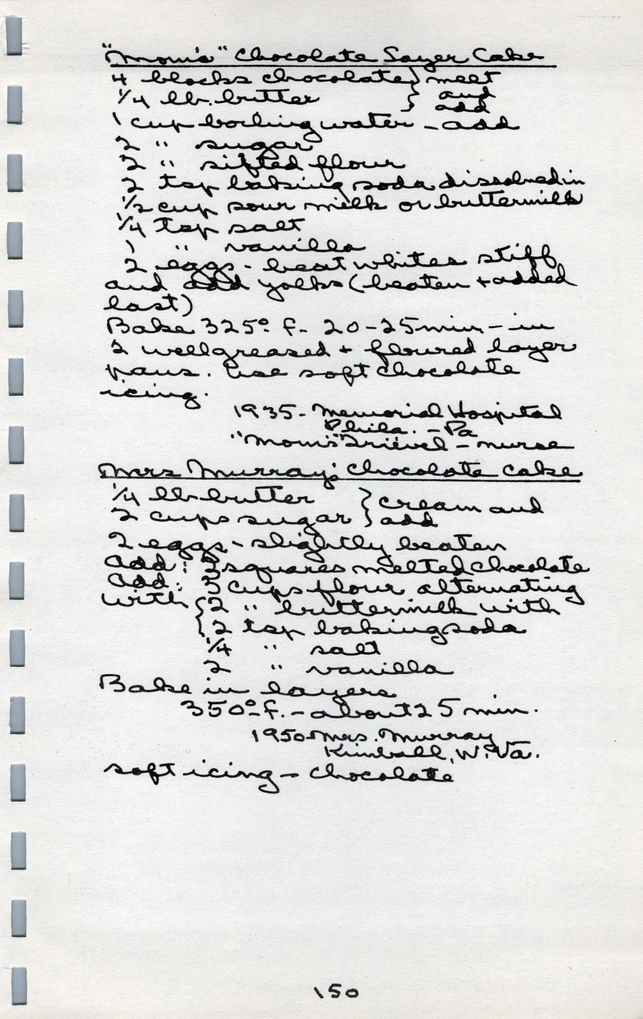 "Mom's" Chocolate Layer Cake
4 blocks chocolate } melt
1/4 lb. butter } and add
1 cup boiling water - add
2 " sugar
2 " sifted flour
2 tsp baking soda dissolved in
1/2 cup sour milk or buttermilk
1/4 tsp salt
1 " vanilla
2 eggs - beat whites stiff
and add yolks (beaten + added
last)
Bake 325° f. 20-25 min - in
2 well greased + floured layer
pans. Use soft chocolate
icing.
1935 - Memorial Hospital
Phila. - Pa
"Mom's" - nurse
Mrs Murray's chocolate cake
1/4 lb butter } cream and
2 cups sugar } add
2 eggs - slightly beaten
Add: squares melted chocolate
Add: 3 cups flour alternating
with { 2 " buttermilk with
{ 2 tsp baking soda
1/4 " salt
2 " vanilla
Bake in layers
350° f. - about 25 min.
1950 - Mrs. Murray
Kimball, W. Va.
soft icing - chocolate
150